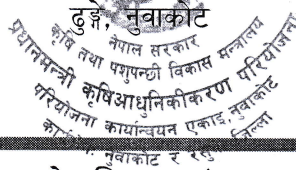 ढुङ्गे, नुवाकोट
नेपाल सरकार
कृषि तथा पशुपन्छी विकास मन्त्रालय
प्रधानमन्त्री कृषि आधुनिकीकरण परियोजना
परियोजना कार्यान्वयन एकाइ, नुवाकोट
नुवाकोट र